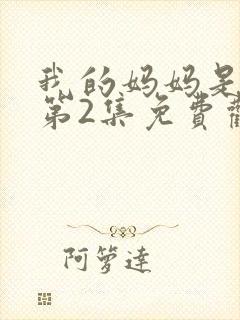 我的妈妈是
第2集免費
阿箩達